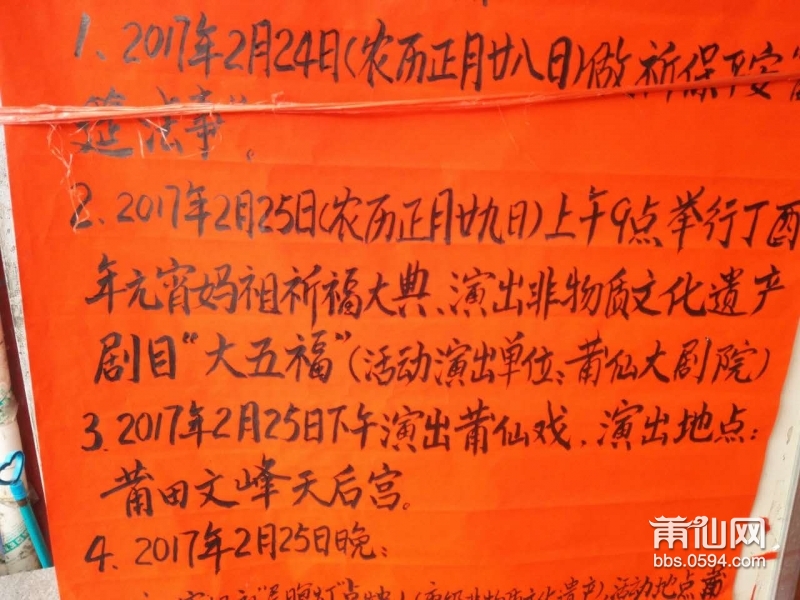 1、2017年2月24日(农历正月廿八日)做祈保平安
筵法事"。
2、2017年2月25日(农历正月廿九日)上午9点举行丁酉
年元宵妈祖祈福大典、演出非物质文化遗产
剧目“大五福”(活动演出单位:莆仙大剧院)
3、2017年2月25日下午演出莆仙戏、演出地点:
莆田文峰天后宫。
4、2017年2月25日晚:
活动地点
莆仙网
bbs.0594.com